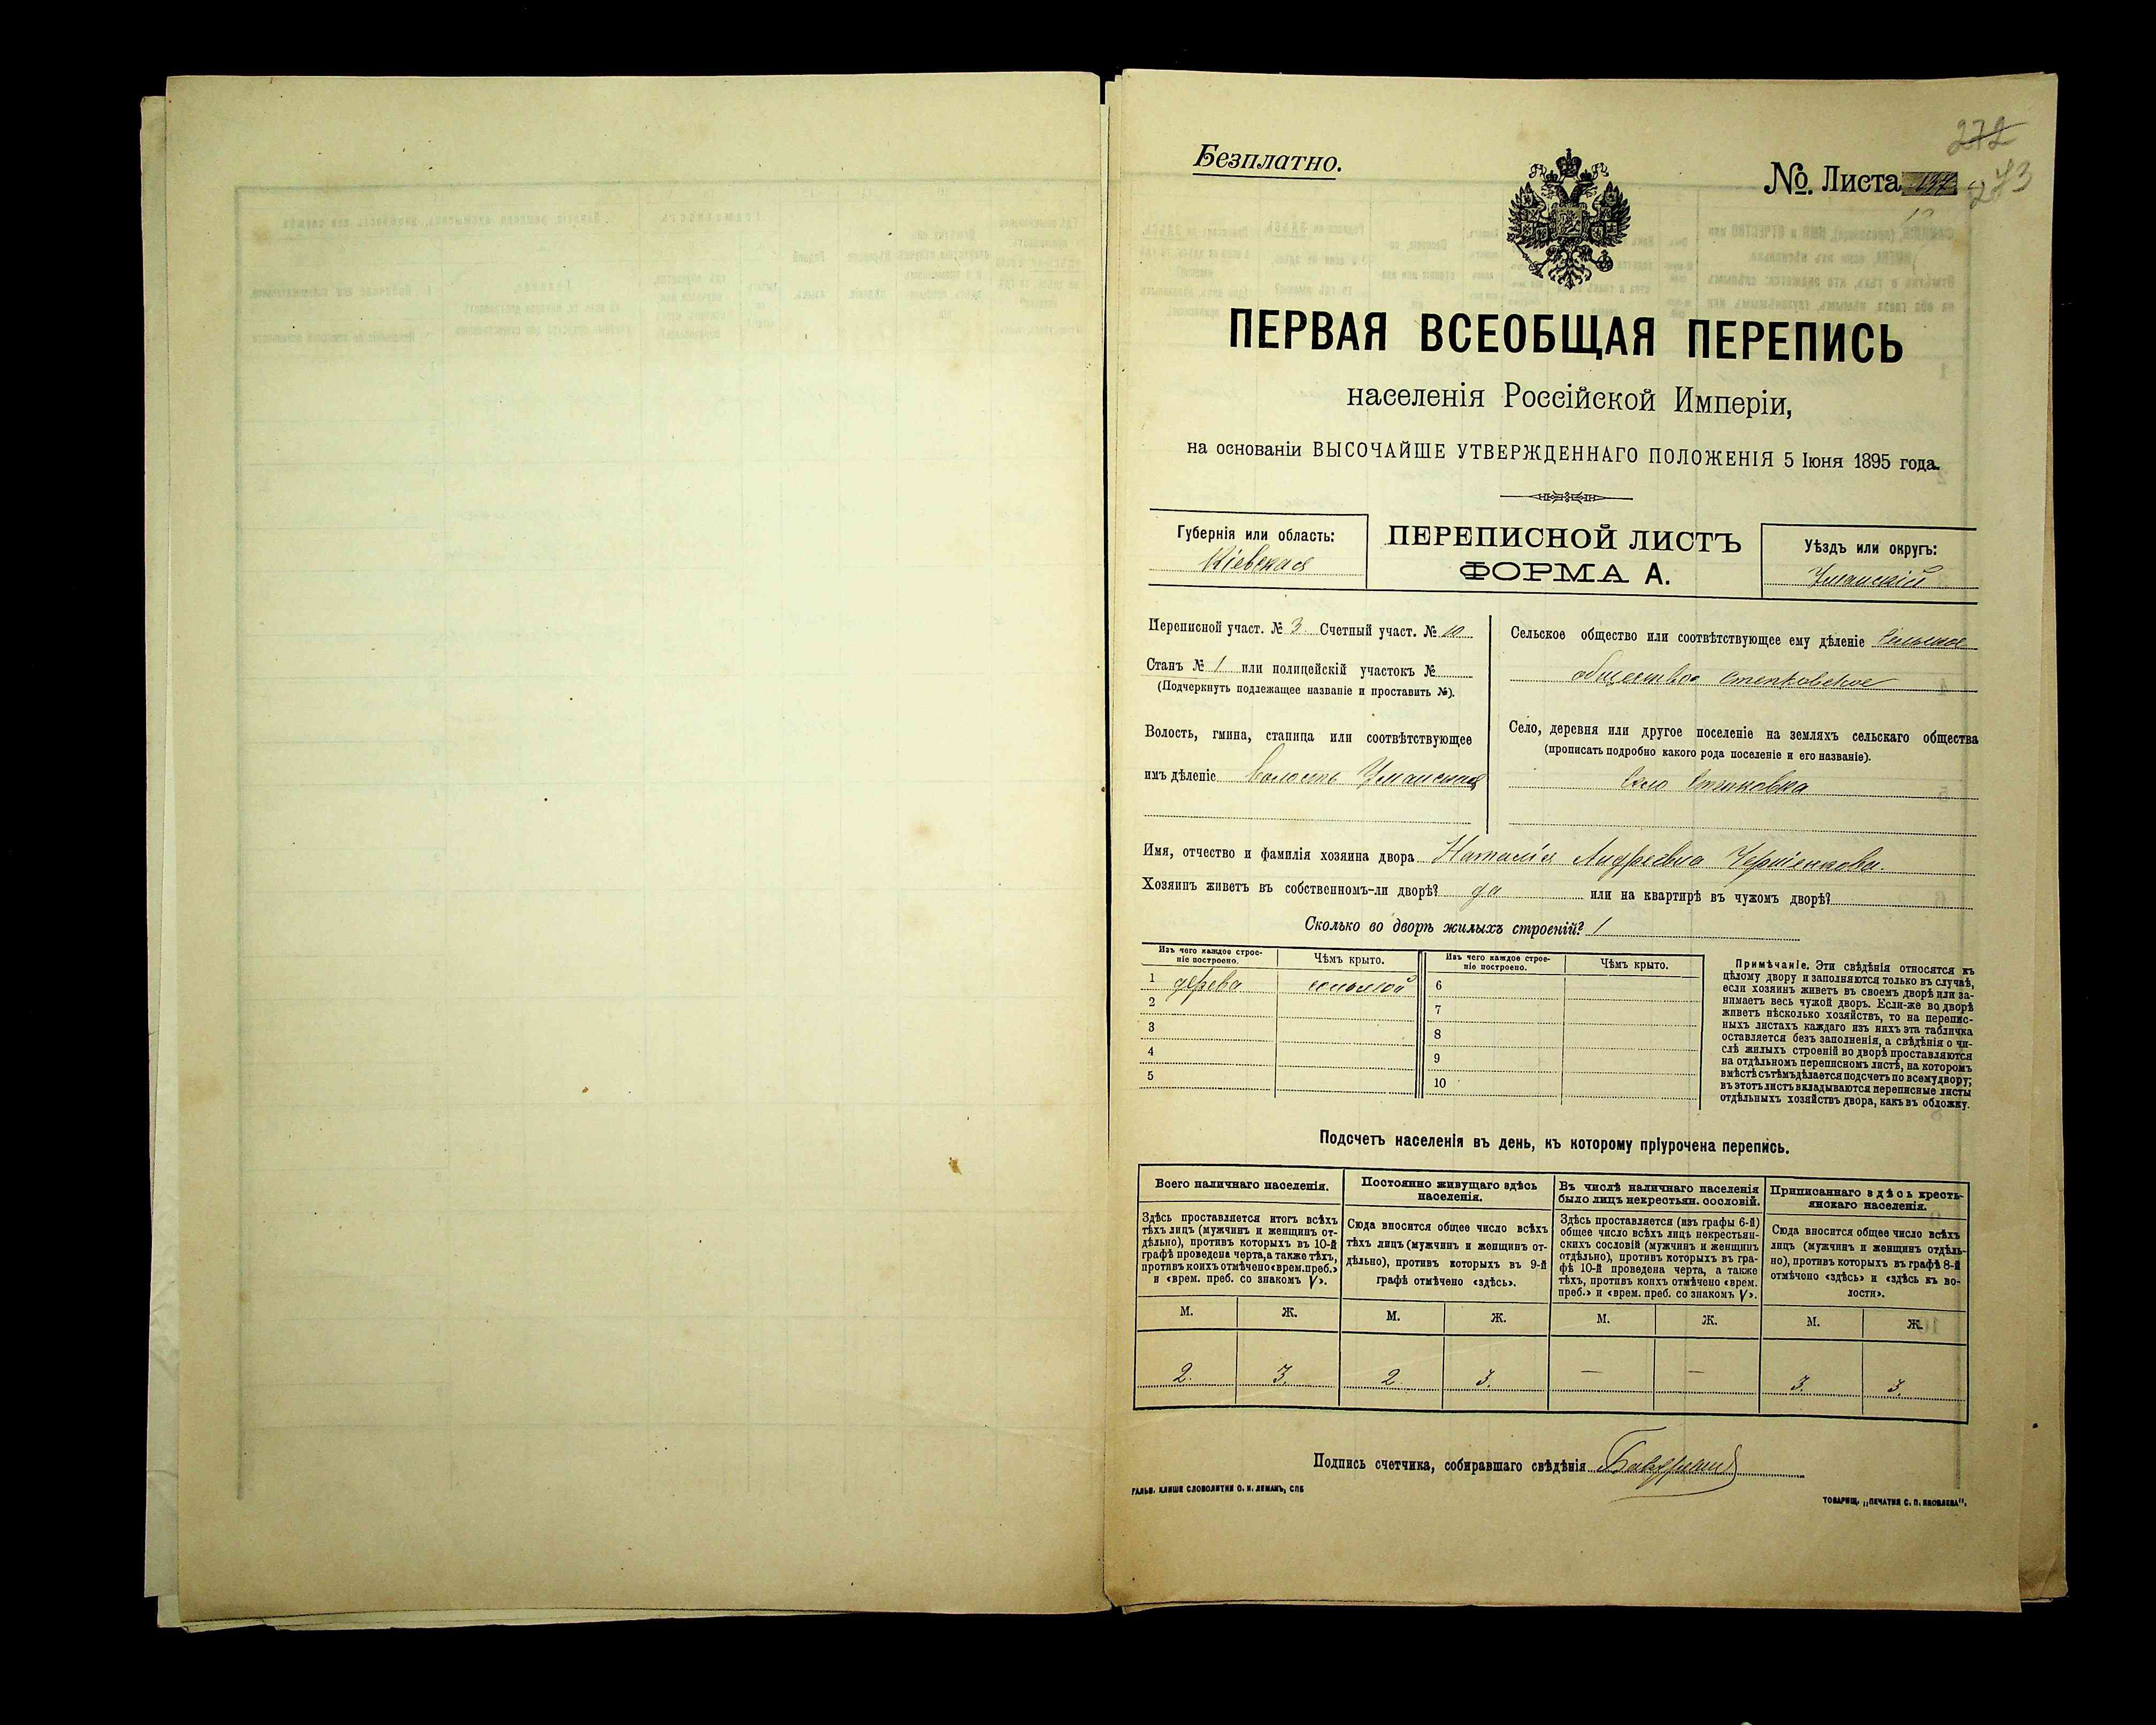 272
273
Безплатно.
№. Листа 137
ПЕРВАЯ ВСЕОБЩАЯ ПЕРЕПИСЬ
населенія Россійской Имперіи,
на основаніи ВЫСОЧАЙШЕ УТВЕРЖДЕННАГО ПОЛОЖЕНІЯ 5 Іюня 1895 года.
Губернія или область:
Кіевская
ПЕРЕПИСНОЙ ЛИСТЪ
ФОРМА А.
Уѣздъ или округъ:
Уманскій
Переписной участ. № 3 Счетный участ. № 10
Станъ № 1 или полицейскій участокъ №
(Подчеркнуть подлежащее названіе и проставить №).
Волость, гмина, станица или соотвѣтствующее
имъ дѣленіе Волость Уманская
Сельское общество или соотвѣтствующее ему дѣленіе Сельское
общество Степковское
Село, деревня или другое поселеніе на земляхъ сельскаго общества
(прописать подробно какого рода поселеніе и его названіе).
Село Степковка
Имя, отчество и фамилія хозяина двора Наталія Андреевна
Хозяинъ живетъ въ собственномъ-ли дворѣ? да или на квартирѣ въ чужомъ дворѣ?
Сколько во дворѣ жилыхъ строеній? 1
Изъ чего каждое строе-
ніе построено.
Чѣмъ крыто.
Изъ чего каждое строе-
ніе построено.
Чѣмъ крыто.
1 дерева соломой
2
3
4
5
6
7
8
9
10
Примѣчаніе. Эти свѣдѣнія относятся къ
цѣлому двору и заполняются только въ случаѣ,
если хозяинъ живетъ въ своемъ дворѣ или за-
нимаетъ весь чужой дворъ. Если-же во дворѣ
живетъ нѣсколько хозяйствъ, то на перепис-
ныхъ листахъ каждаго изъ нихъ эта табличка
оставляется безъ заполненія, а свѣдѣнія о чи-
слѣ жилыхъ строеній во дворѣ проставляются
на отдѣльномъ переписномъ листѣ, на которомъ
вмѣстѣ съ тѣмъ дѣлается подсчетъ по всему двору;
въ этотъ листъ вкладываются переписные листы
отдѣльныхъ хозяйствъ двора, какъ въ обложку.
Подсчетъ населенія въ день, къ которому пріурочена перепись.
Всего наличнаго населенія.
Здѣсь проставляется итогъ всѣхъ
тѣхъ лицъ (мужчинъ и женщинъ от-
дѣльно), противъ которыхъ въ 10-й
графѣ проведена черта, а также тѣхъ,
противъ коихъ отмѣчено «врем. преб.»
и «врем. преб. со знакомъ V».
Постоянно живущаго здѣсь
населенія.
Сюда вносится общее число всѣхъ
тѣхъ лицъ (мужчинъ и женщинъ от-
дѣльно), противъ которыхъ въ 9-й
графѣ отмѣчено «здѣсь».
Въ числѣ наличнаго населенія
было лицъ некрестьян. сословій.
Здѣсь проставляется (изъ графы 6-й)
общее число всѣхъ лицъ некрестьян-
скихъ сословій (мужчинъ и женщинъ
отдѣльно), противъ которыхъ въ гра-
фѣ 10-й проведена черта, а также
тѣхъ, противъ коихъ отмѣчено «врем.
преб.» и «врем. преб. со знакомъ V».
Приписаннаго здѣсь кресть-
янскаго населенія.
Сюда вносится общее число всѣхъ
лицъ (мужчинъ и женщинъ отдѣль-
но), противъ которыхъ въ графѣ 8-й
отмѣчено «здѣсь» и «здѣсь къ во-
лости».
М. Ж. М. Ж. М. Ж. М. Ж.
2. 3. 2. 3. — — 3. 3.
Подпись счетчика, собиравшаго свѣдѣнія
ГАЛЬВ. КЛИШЕ СЛОВОЛИТНИ О. И. ЛЕМАНЪ, СПБ
ТОВАРИЩ. „ПЕЧАТНЯ С. П. ЯКОВЛЕВА".